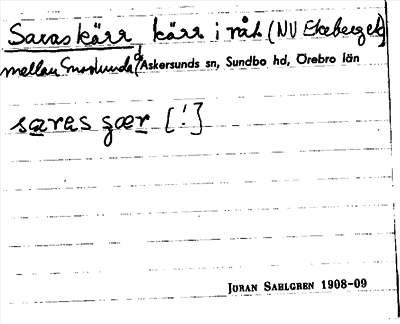 Saras kärr kärr i rås (NV Ekeberget)
mellan Snavlunda o. Askersunds sn, Sundbo hd, Örebro län
saras gær [!]
JÖRAN SAHLGREN 1908-09